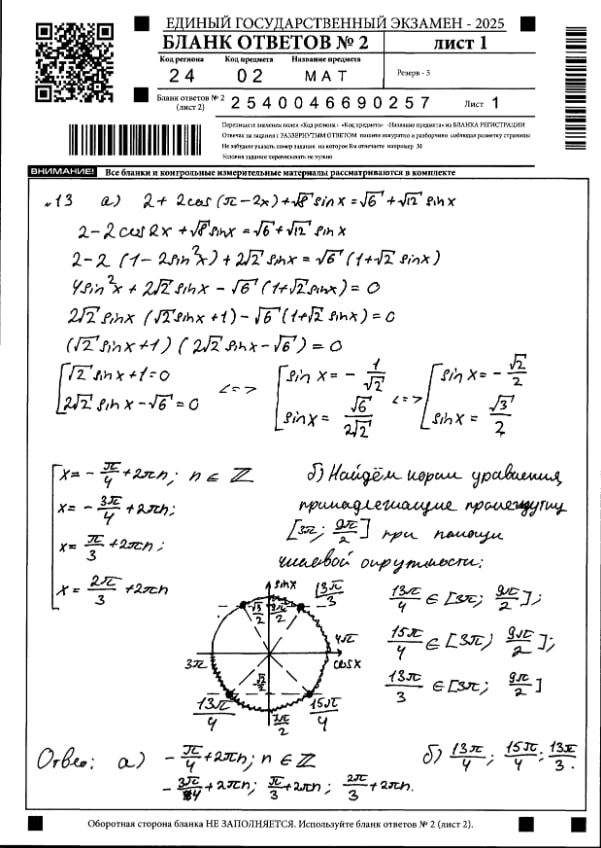 ЕДИНЫЙ ГОСУДАРСТВЕННЫЙ ЭКЗАМЕН - 2025
БЛАНК ОТВЕТОВ № 2 лист 1
Код региона Код предмета Название предмета
24 02 МАТ Резерв - 5
Бланк ответов № 2 (лист 2) 2540046690257 Лист 1
Перепишите значения полей «Код региона», «Код предмета», «Название предмета» из БЛАНКА РЕГИСТРАЦИИ
Отвечая на задания с РАЗВЕРНУТЫМ ОТВЕТОМ пишите аккуратно и разборчиво соблюдая разметку страницы
Не забудьте указать номер задания, на которое Вы отвечаете например 30
Условия задания переписывать не нужно
ВНИМАНИЕ! Все бланки и контрольные измерительные материалы рассматриваются в комплекте
№13 а) 2 + 2cos(π - 2x) + √8 sin x = √6 + √12 sin x
2 - 2cos2x + √8 sin x = √6 + √12 sin x
2 - 2(1 - 2sin²x) + 2√2 sin x = √6(1 + √2 sin x)
4sin²x + 2√2 sin x - √6(1 + √2 sin x) = 0
2√2 sin x(√2 sin x + 1) - √6(1 + √2 sin x) = 0
(√2 sin x + 1)(2√2 sin x - √6) = 0
[√2 sin x + 1 = 0 <=> [sin x = -1/√2 <=> [sin x = -√2/2
[2√2 sin x - √6 = 0 [sin x = √6/2√2 [sin x = √3/2
[x = -π/4 + 2πn; n ∈ ℤ
x = -3π/4 + 2πn;
x = π/3 + 2πn;
x = 2π/3 + 2πn
б) Найдём корни уравнения,
принадлежащие промежутку
[3π; 9π/2] при помощи
числовой окружности:
sin x
13π/3
√3/2
9π/2
4π
cos x
3π
-√2/2
13π/4
7π/2
15π/4
13π/4 ∈ [3π; 9π/2];
15π/4 ∈ [3π; 9π/2];
13π/3 ∈ [3π; 9π/2]
Ответ: а) -π/4 + 2πn; n ∈ ℤ б) 13π/4; 15π/4; 13π/3.
-3π/4 + 2πn; π/3 + 2πn; 2π/3 + 2πn.
Оборотная сторона бланка НЕ ЗАПОЛНЯЕТСЯ. Используйте бланк ответов № 2 (лист 2).